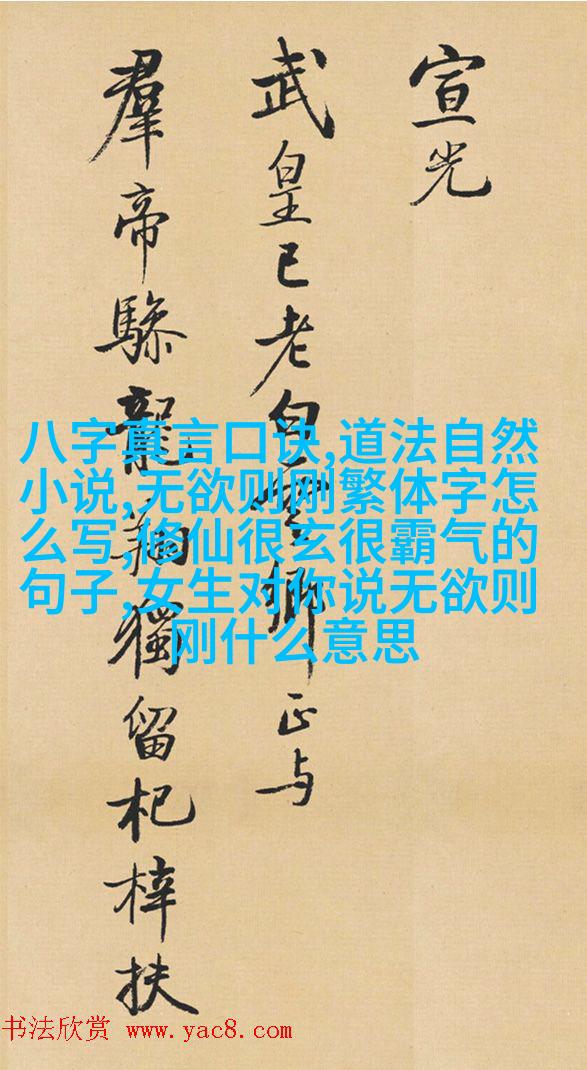 宣光
武皇已老白雲鄉正与
羣帝驂龍翔獨留杞梓扶
八字真言口诀,道法自然
小说,无欲则刚繁体字怎
么写,修仙很玄很霸气的
句子,女生对你说无欲则
刚什么意思
书法欣赏 www.yac8.com